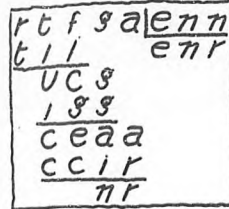 rtfga|enn
tii enr
ucg
igg
ceaa
ccir
nr